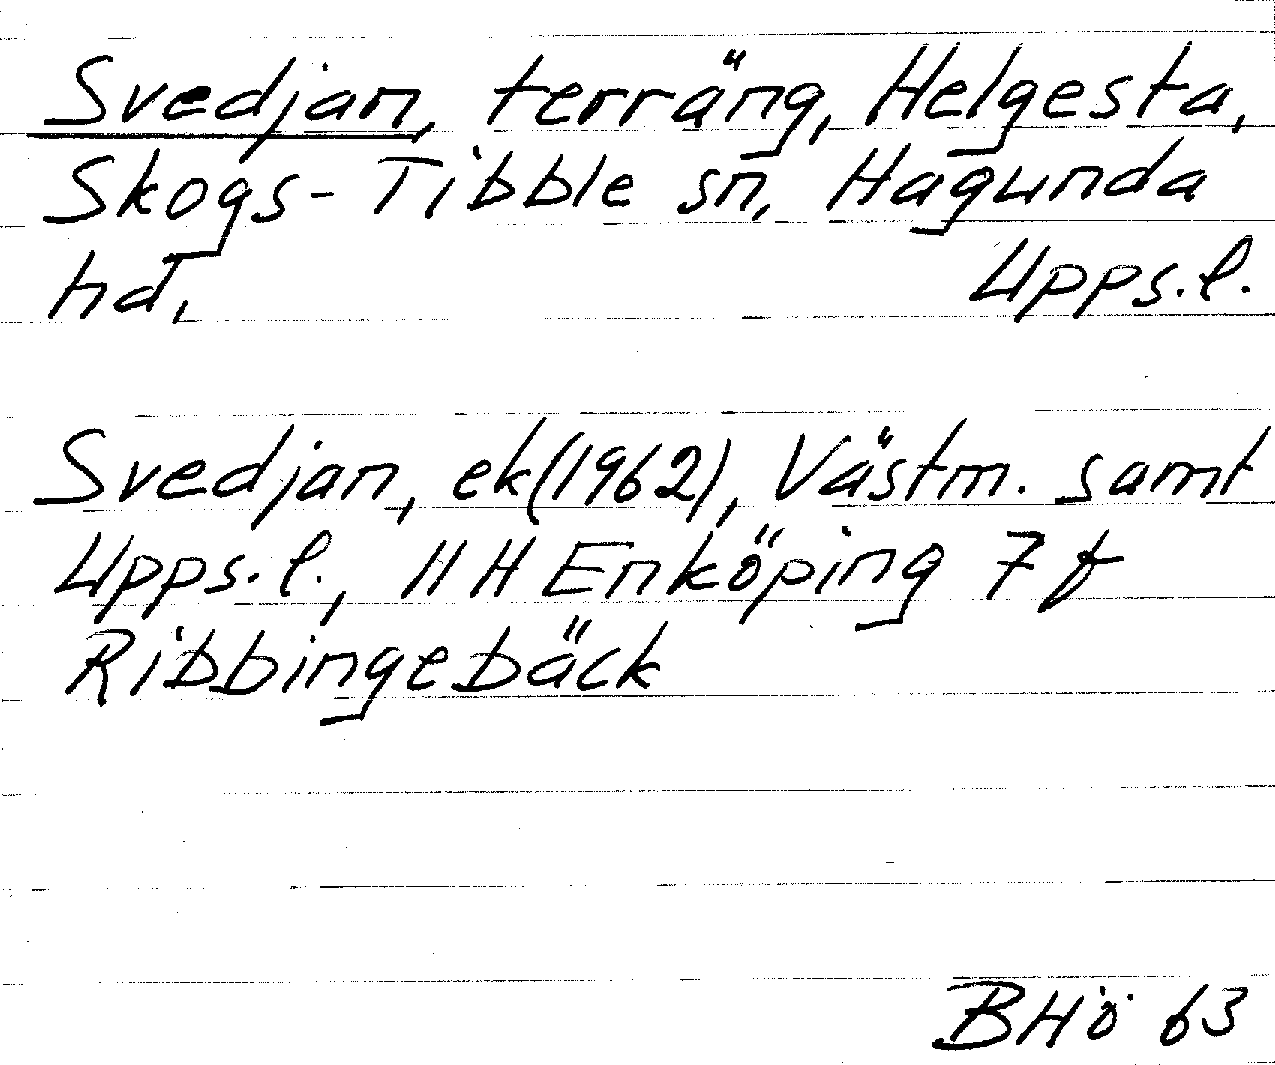 Svedjan, terräng, Helgesta,
Skogs-Tibble sn, Hagunda
hd. Upps.l.
Svedjan, ek(1962), Västm. samt
Upps.l., 11 H Enköping 7 f
Ribbingebäck
BHö 63